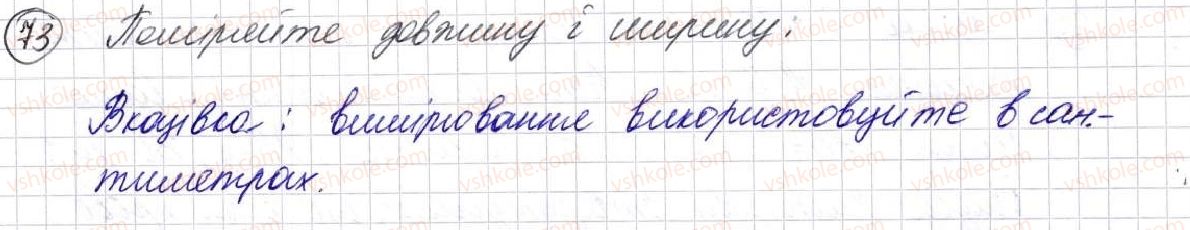 73 Поміряйте довжину і ширину.
Вказівка: вимірювання використовуйте в сан-
тиметрах.